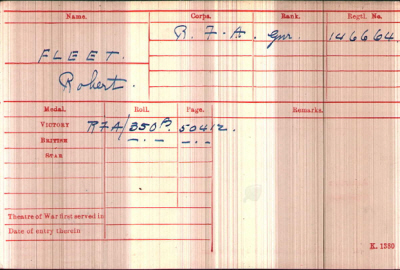 Name. Corps. Rank. Regtl. No.
FLEET. R.F.A. Gnr. 146664.
Robert.
Medal. Roll. Page. Remarks.
VICTORY RFA/350B. 50412.
BRITISH —·— —·—
STAR
Theatre of War first served in
Date of entry therein
K. 1380